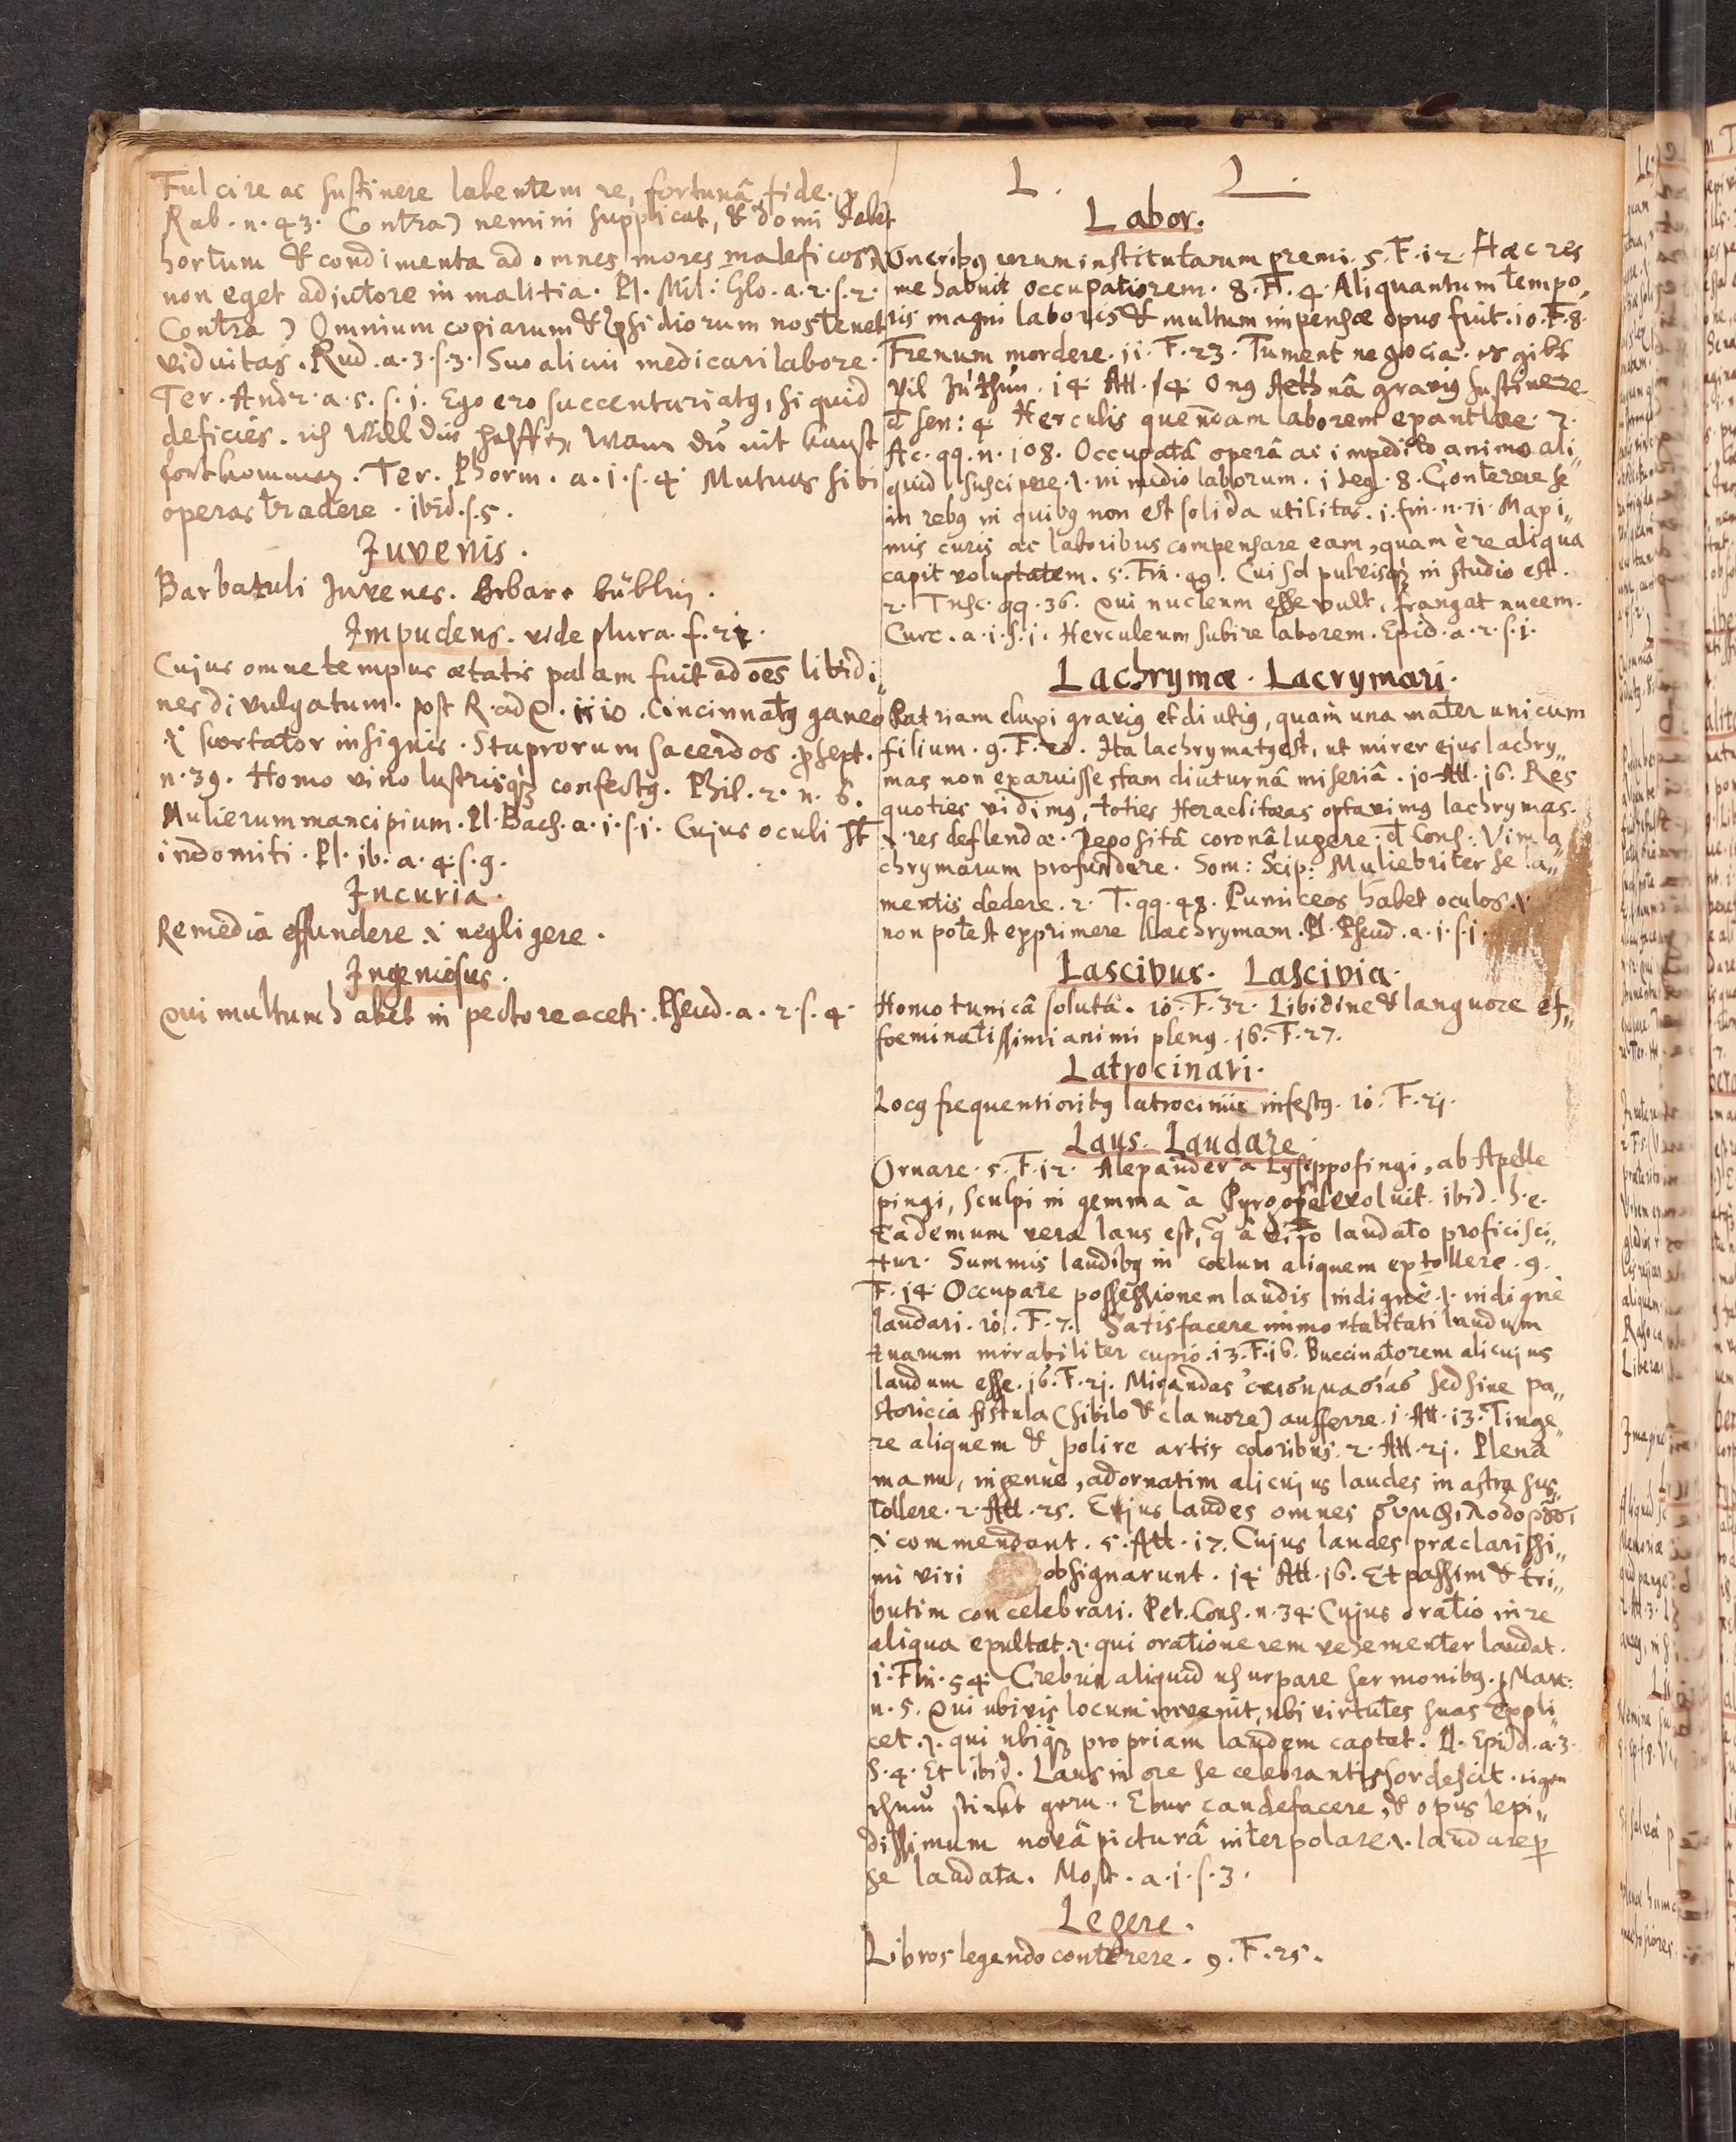 Fulcire ac sustinere labentem re, fortunâ, fide. p
Rab. n. 43. Contra) nemini supplicat, & domi habet
hortum & condimenta ad omnes mores maleficos
non eget adjutore in malitia. Pl. Mil: Glo. a. 2. s. 2.
Contra) Omnium copiarum & nos tenet
viduitas. Rud. a. 3. s. 3. Suo alicui medicari labore.
Ter. Andr. a. 5. s. 1. Ego ero succenturiatꝯ, si quid
deficies. ich will dir helffen, wann du nit kanst
fortkommen. Ter. Phorm. a. 1. s. 4. Mutuas sibi
operas tradere. ibid. s. 5.
Juvenis.
Barbatuli Juvenes. Erbare büblin.
Impudens. vide plura. f.
Cujus omne tempus ætatis palam fuit ad oēs libidi„
nes divulgatum. post R. ad Q. 10. Cincinnatꝯ ganeo
scortator insignis. Stuprorum sacerdos. p sept.
n. 39. Homo vino lustrisqꝫ confectꝯ. Phil. 2. n. 6.
Mulierum mancipium. Pl. Bach. a. 1. s. 1. Cujus oculi st
indomiti. Pl. ib. a. 4. s. 9.
Incuria.
Remedia effundere negligere.
Ingeniosus.
Qui multum habet in pectore aceti. Pseud. a. 2. s. 4.
L. L.
Labor.
Oneribꝯ rerum institutarum premi. 5. F. 12. Hæc res
me habuit occupatiorem. 8. F. 4. Aliquantum tempo„
ris magni laboris & multum impensæ opus fuit. 10. F. 8.
Frenum mordere. 11. F. 23. Tument negocia. es gibt
vil zů thůn. 14. Att. 14. Onꝯ Aethnâ graviꝯ sustinere
d sen: 4. Herculis quendam laborem exantlae. 2.
Ac. qq. n. 108. Occupatâ operâ ac impedito animo ali„
quid suscipere. in medio laborum. 1 Leg. 8. Conterere se
in rebꝯ in quibꝯ non est solida utilitas. 1. fin. n. 71. Maxi„
mis curis ac laboribus compensare eam, quam è re aliqua
capit voluptatem. 5. Fin. 49. Cui sol pulvisqꝫ in studio est.
2. Tusc. qq. 36. Qui nucleum esse vult, frangat nucem.
Curc. a. 1. s. 1. Herculeum subire laborem. Epid. a. 2. s. 1.
Lachrymæ. Lacrymari.
Patriam eluxi graviꝯ et diutiꝯ, quam una mater unicum
filium. 9. F. 20. Ita lachrymatꝯ est, ut mirer ejus lachry„
mas non exaruisse tam diuturnâ miseriâ. 10. Att. 16. Res
quoties vidimꝯ, toties Heracliteas optavimꝯ lachrymas.
res deflendæ. Depositâ coronâ lugere. d Cons. Vim la
chrymarum profundere. Som: Scip: Muliebriter se la„
mentis dedere. 2. T. qq. 48. Pumiceos habet oculos.
non potest exprimere lachrymam. Pl. Pseud. a. 1. s. 1.
Lascivus. Lascivia.
Homo tunicâ solutâ. 10. F. 32. Libidine & languore ef„
foeminatissimi animi plenꝯ. 16. F. 27.
Latrocinari.
Locꝯ frequentioribꝯ latrociniis infestꝯ. 10. F. 21.
Laus. Laudare.
Ornare. 5. F. 12. Alexander à Lysippo fingi, ab Apelle
pingi, sculpi in gemma à voluit. ibid. h. e.
Ea demum vera laus est, q̄ à viro laudato proficisci„
tur. Summis laudibꝯ in cœlum aliquem extollere. 9.
F. 14. Occupare possessionem laudis indignè. indignè
laudari. 10. F. 7. Satisfacere immortalitati laudum
tuarum mirabiliter cupio. 13. F. 16. Buccinatorem alicujus
laudum esse. 16. F. 21. Mirandas ἐπισημασίας sed sine pa„
storicia fistula (sibilo & clamore) aufferre. 1. Att. 13. Tinge„
re aliquem & polire artis coloribus. 2. Att. 21. Plena
manu, ingenuè, adornatim alicujus laudes in astra sus„
tollere. 2. Att. 25. Cujus laudes omnes
commendant. 5. Att. 17. Cujus laudes præclarissi„
mi viri obsignarunt. 14. Att. 16. Et passim & tri„
butim concelebrari. Pet. Cons. n. 34. Cujus oratio in re
aliqua exultat. qui oratione rem vehementer laudat.
1. Fin. 54. Crebris aliquid usurpare sermonibꝯ. p Marc:
n. 5. Qui ubivis locum invenit, ubi virtutes suas expli„
cet. qui ubiqꝫ propriam laudem captat. Pl. Epid. a. 3.
s. 4. Et ibid. Laus in ore se celebrantis sordescit. eigen
rhum stinkt gern. Ebur candefacere, & opus lepi„
dissimum novâ picturâ interpolare. laudare p
se laudata. Most. a. 1. s. 3.
Legere.
Libros legendo conterere. 9. F. 25.